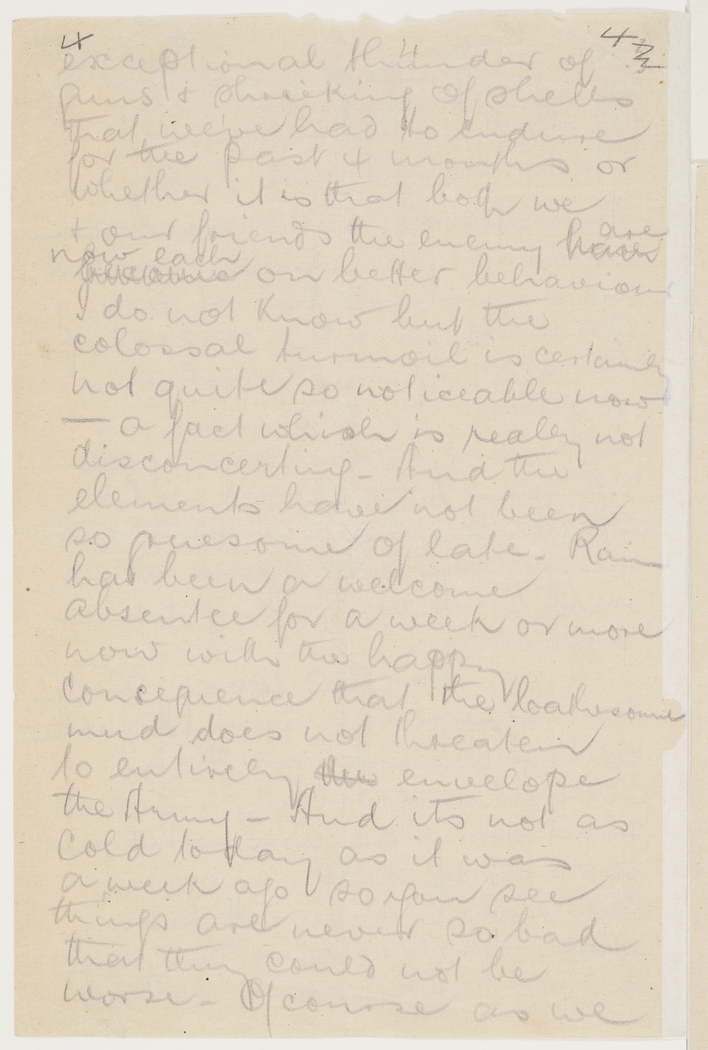 4
exceptional thunder of
guns & shrieking of shells
that we've had to endure
for the past 4 months or
whether it is that both we
& our friends the enemy are
now each on better behaviour
I do not know but the
colossal turmoil is certainly
not quite so noticeable now
— a fact which is really not
disconcerting – And the
elements have not been
so gruesome of late – Rain
has been a welcome
absentee for a week or more
now with the happy
consequence that the loathesome
mud does not threaten
to entirely envelope
the Army – And its not as
cold today as it was
a week ago so you see
things are never so bad
that they could not be
worse – Of course as we